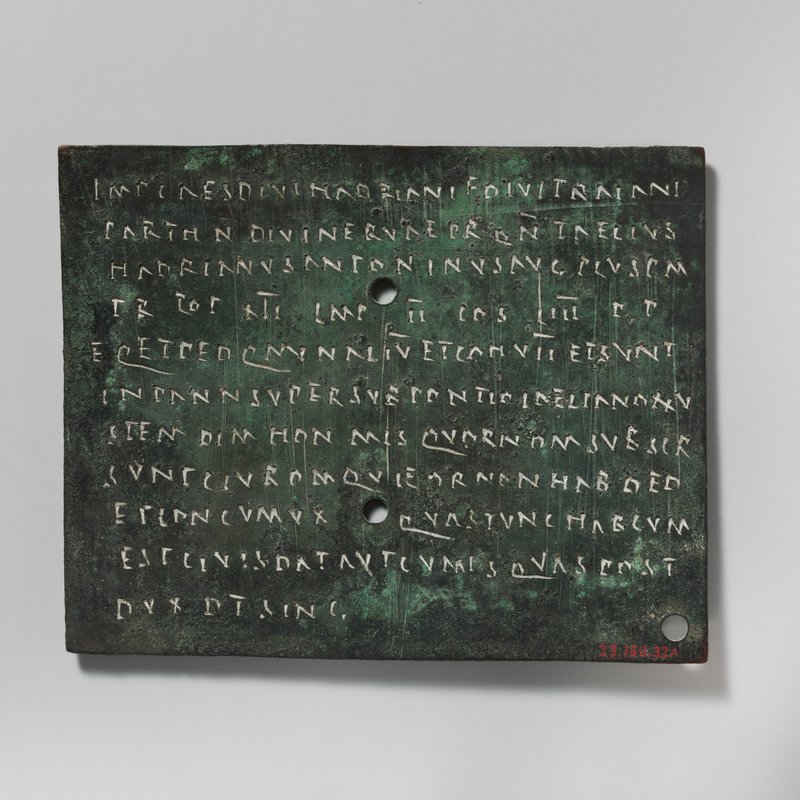 IMP CAES DIVI HADRIANI F DIVI TRAIANI
PARTH N DIVI NERVAE PR ON T AELIVS
HADRIANVS ANTONINVS AVG PIVS P M
TR POT XII IMP II COS IIII P P
EQ ET PED Q M V IN AL IV ET COH VII ET SVNT
IN PANN SVPER SVB PONTIO LAELIANO XXV
STEM DIM HON MIS QVOR NOM SVBSCR
SVNT CIV ROM QVI EOR NON HAB DED
ET CON CVM VX QVAS TVNC HAB CVM
EST CIV IS DAT AVT CVM IS QVAS POST
DVX DT SING
23.160.32A